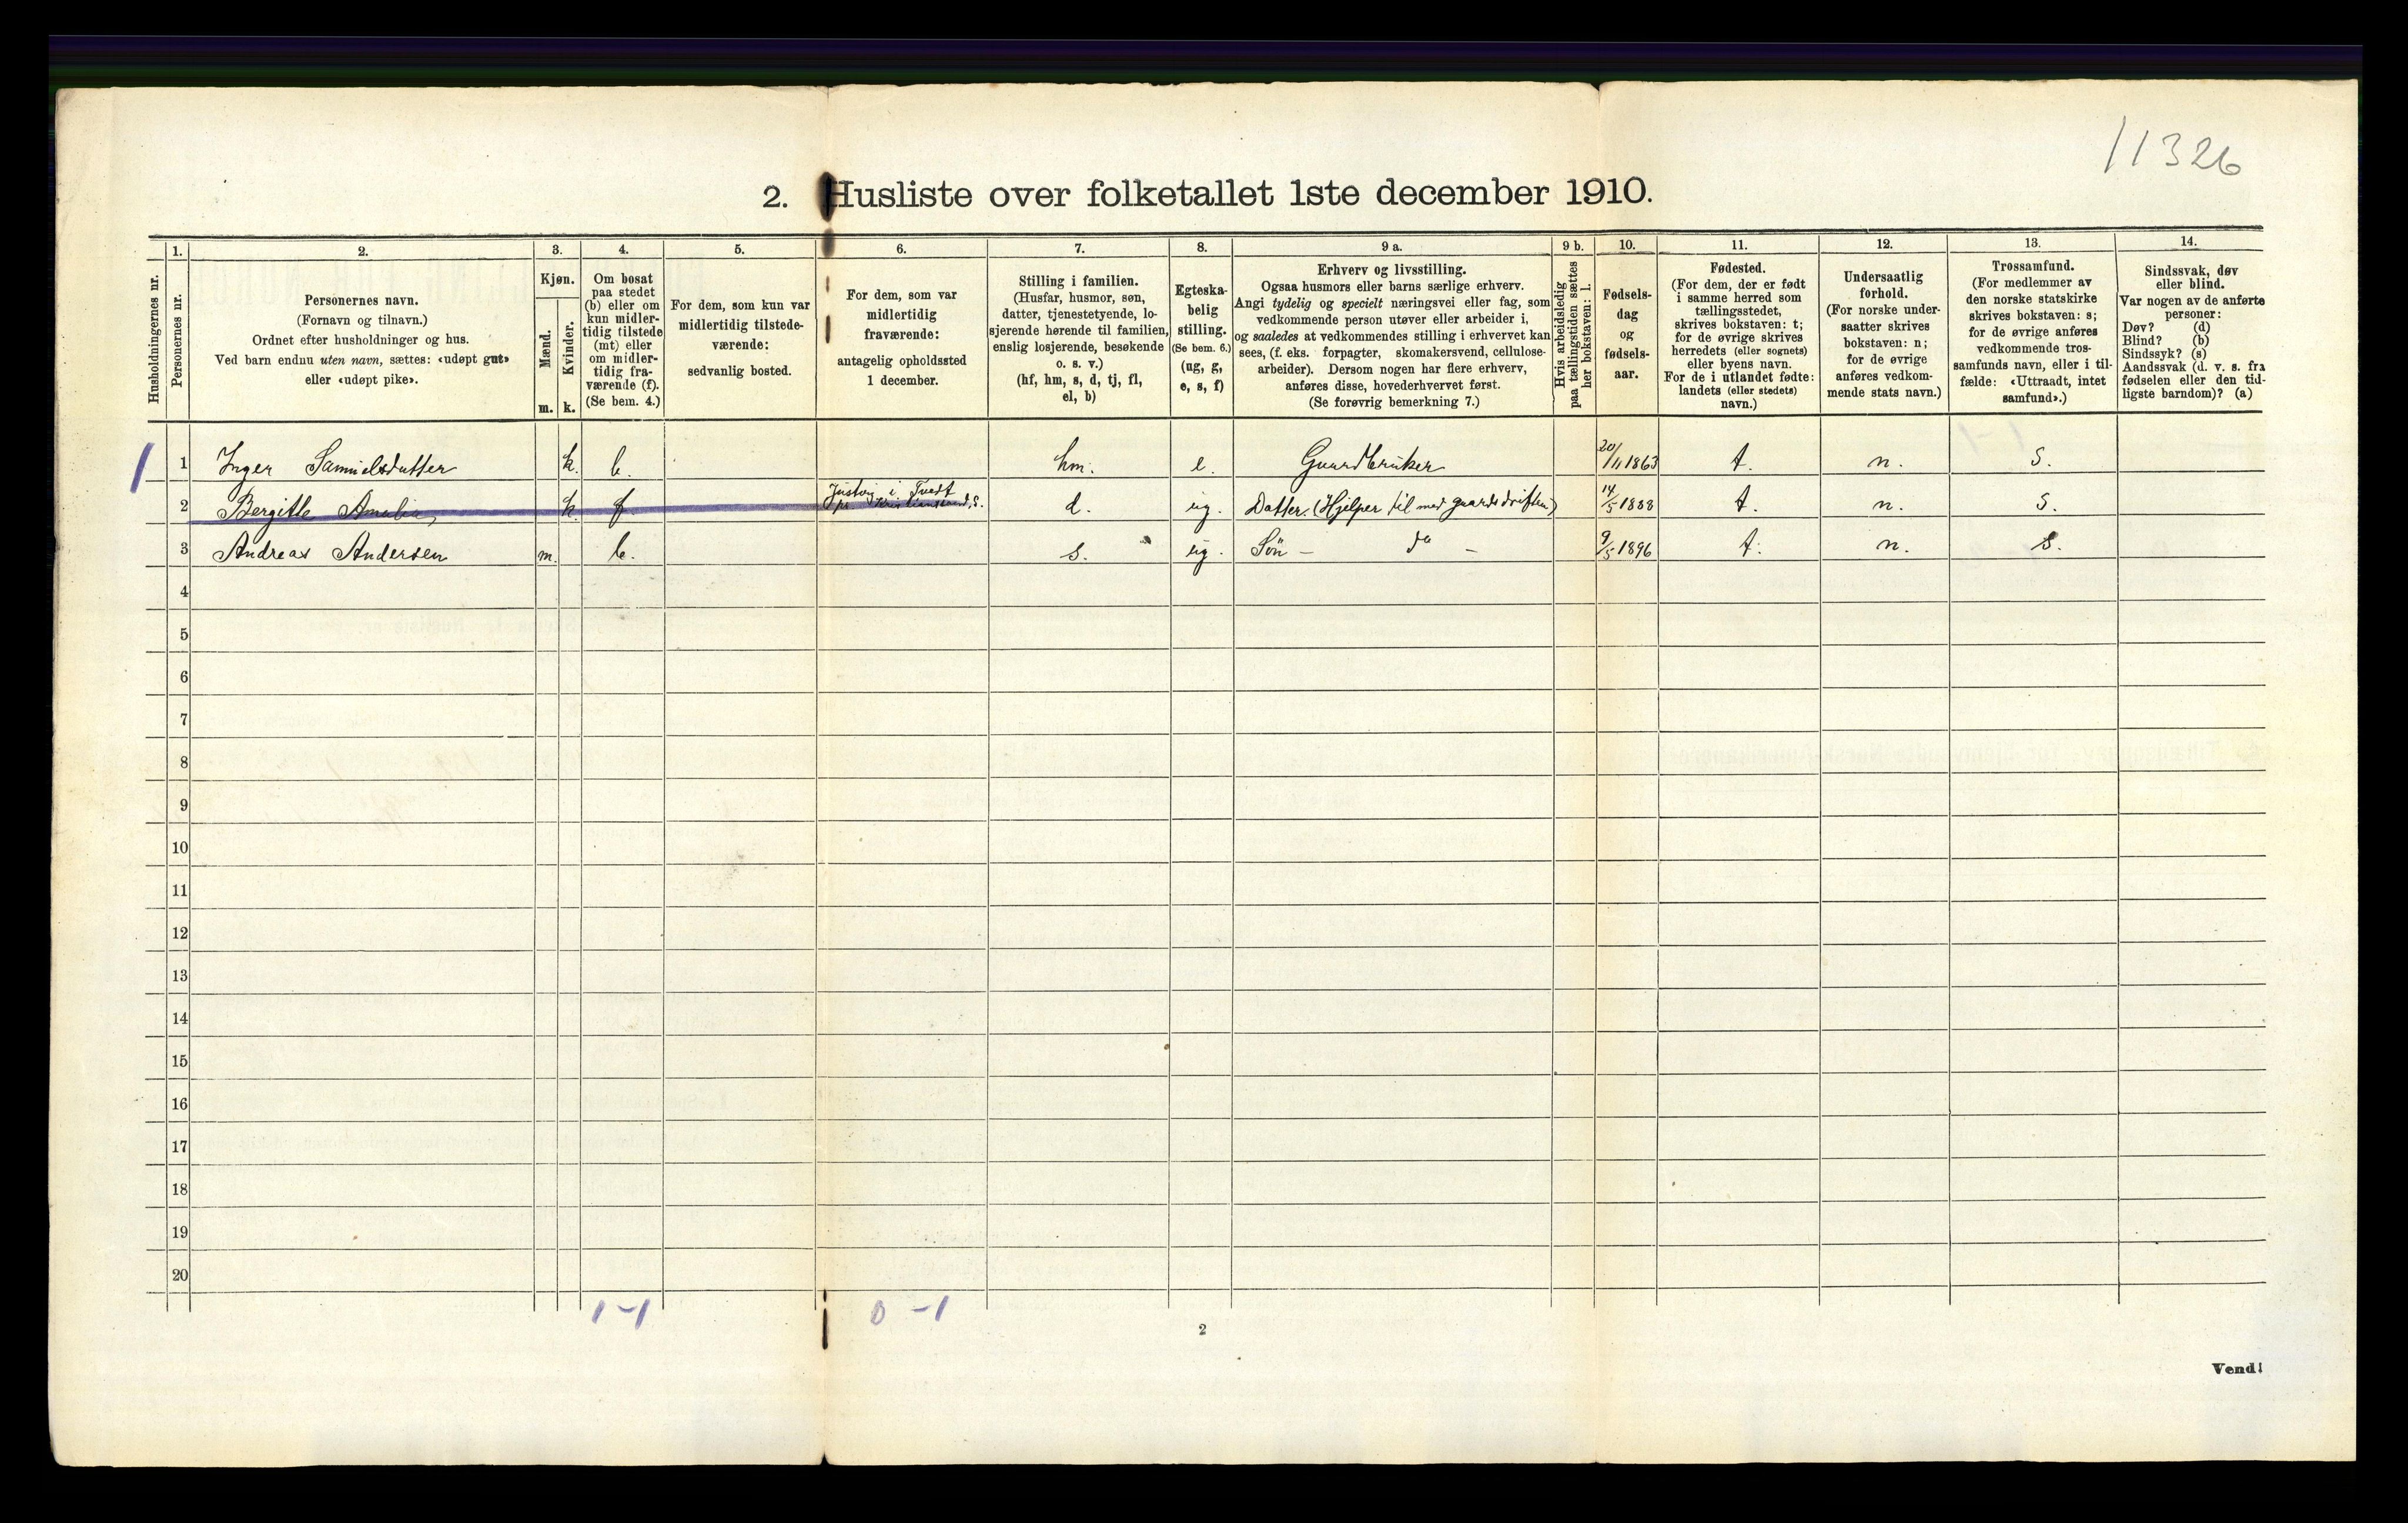 11326
2. Husliste over folketallet 1ste december 1910.
1. 2. 3. 4. 5. 6. 7. 8. 9 a. 9 b. 10. 11. 12. 13. 14.
Husholdningernes nr.
Personernes nr.
Personernes navn.
(Fornavn og tilnavn.)
Ordnet efter husholdninger og hus.
Ved barn endnu uten navn, sættes: «udøpt gut»
eller «udøpt pike».
Kjøn.
Mænd.
Kvinder.
m. k.
Om bosat
paa stedet
(b) eller om
kun midler-
tidig tilstede
(mt) eller
om midler-
tidig fra-
værende (f).
(Se bem. 4.)
For dem, som kun var
midlertidig tilstede-
værende:
sedvanlig bosted.
For dem, som var
midlertidig
fraværende:
antagelig opholdssted
1 december.
Stilling i familien.
(Husfar, husmor, søn,
datter, tjenestetyende, lo-
sjerende hørende til familien,
enslig losjerende, besøkende
o. s. v.)
(hf, hm, s, d, tj, fl,
el, b)
Egteska-
belig
stilling.
(Se bem. 6.)
(ug, g,
e, s, f)
Erhverv og livsstilling.
Ogsaa husmors eller barns særlige erhverv.
Angi tydelig og specielt næringsvei eller fag, som
vedkommende person utøver eller arbeider i,
og saaledes at vedkommendes stilling i erhvervet kan
sees, (f. eks. forpagter, skomakersvend, cellulose-
arbeider). Dersom nogen har flere erhverv,
anføres disse, hovederhvervet først.
(Se forøvrig bemerkning 7.)
Hvis arbeidsledig
paa tællingstiden sættes
her bokstaven: l.
Fødsels-
dag
og
fødsels-
aar.
Fødested.
(For dem, der er født
i samme herred som
tællingsstedet,
skrives bokstaven: t;
for de øvrige skrives
herredets (eller sognets)
eller byens navn.
For de i utlandet fødte:
landets (eller stedets)
navn.)
Undersaatlig
forhold.
(For norske under-
saatter skrives
bokstaven: n;
for de øvrige
anføres vedkom-
mende stats navn.)
Trossamfund.
(For medlemmer av
den norske statskirke
skrives bokstaven: s;
for de øvrige anføres
vedkommende tros-
samfunds navn, eller i til-
fælde: «Uttraadt, intet
samfund».)
Sindssvak, døv
eller blind.
Var nogen av de anførte
personer:
Døv? (d)
Blind? (b)
Sindssyk? (s)
Aandssvak (d. v. s. fra
fødselen eller den tid-
ligste barndom)? (a)
1 1 Inger Samuelsdatter k. b. hm. e. Gaardbruker 20/11 1863 t. n. s.
2 Bergitte Amalia k. f. Justvig i Tveit pr Kristianssand, S. d. ug. Datter. (Hjelper til med gaardsdriften) 14/5 1888 t. n. s.
3 Andreas Andersen m. b. s. ug. Søn – do – 9/5 1896 t. n. s.
4
5
6
7
8
9
10
11
12
13
14
15
16
17
18
19
20
1 – 1 0 – 1
2
Vend!